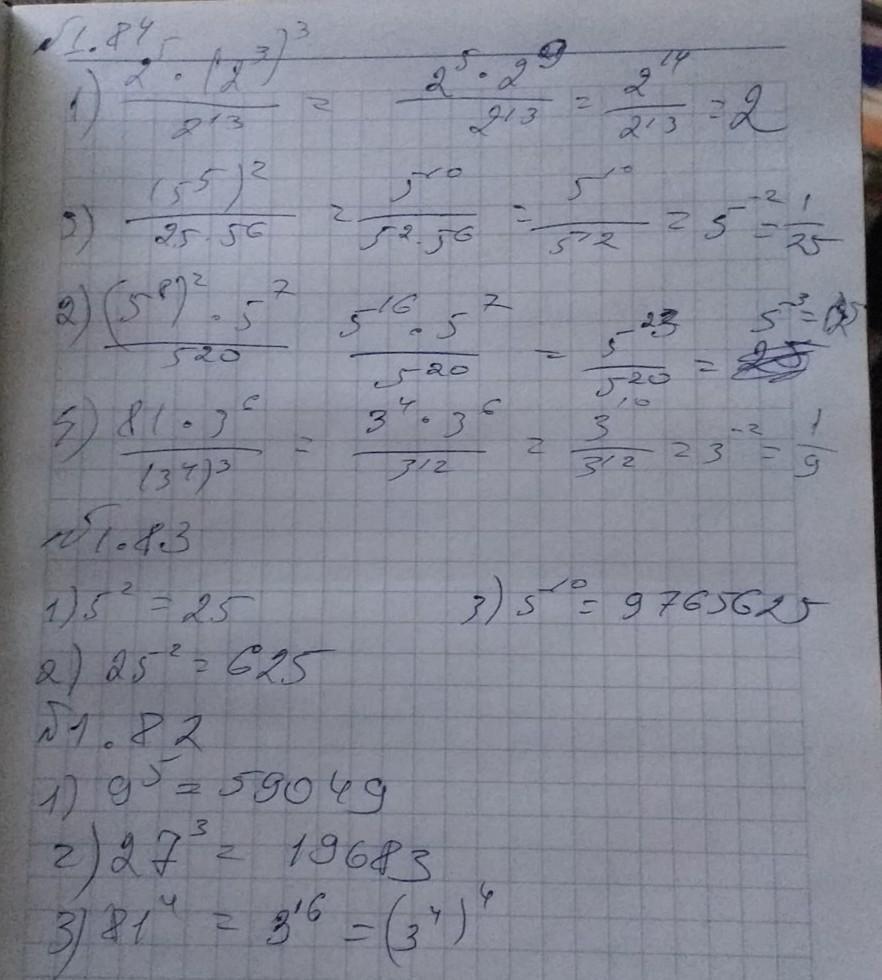 №1.84
1) (2^5 · (2^3)^3) / 2^13 = (2^5 · 2^9) / 2^13 = 2^14 / 2^13 = 2
3) (5^5)^2 / (25 · 5^6) = 5^10 / (5^2 · 5^6) = 5^10 / 5^12 = 5^-2 = 1/25
2) ((5^8)^2 · 5^7) / 5^20 (5^16 · 5^7) / 5^20 = 5^23 / 5^20 = 5^-3 =
5) (81 · 3^6) / (3^4)^3 = (3^4 · 3^6) / 3^12 = 3^10 / 3^12 = 3^-2 = 1/9
№1.83
1) 5^2 = 25 3) 5^10 = 9765625
2) 25^2 = 625
№1.82
1) 9^5 = 59049
2) 27^3 = 19683
3) 81^4 = 3^16 = (3^4)^4